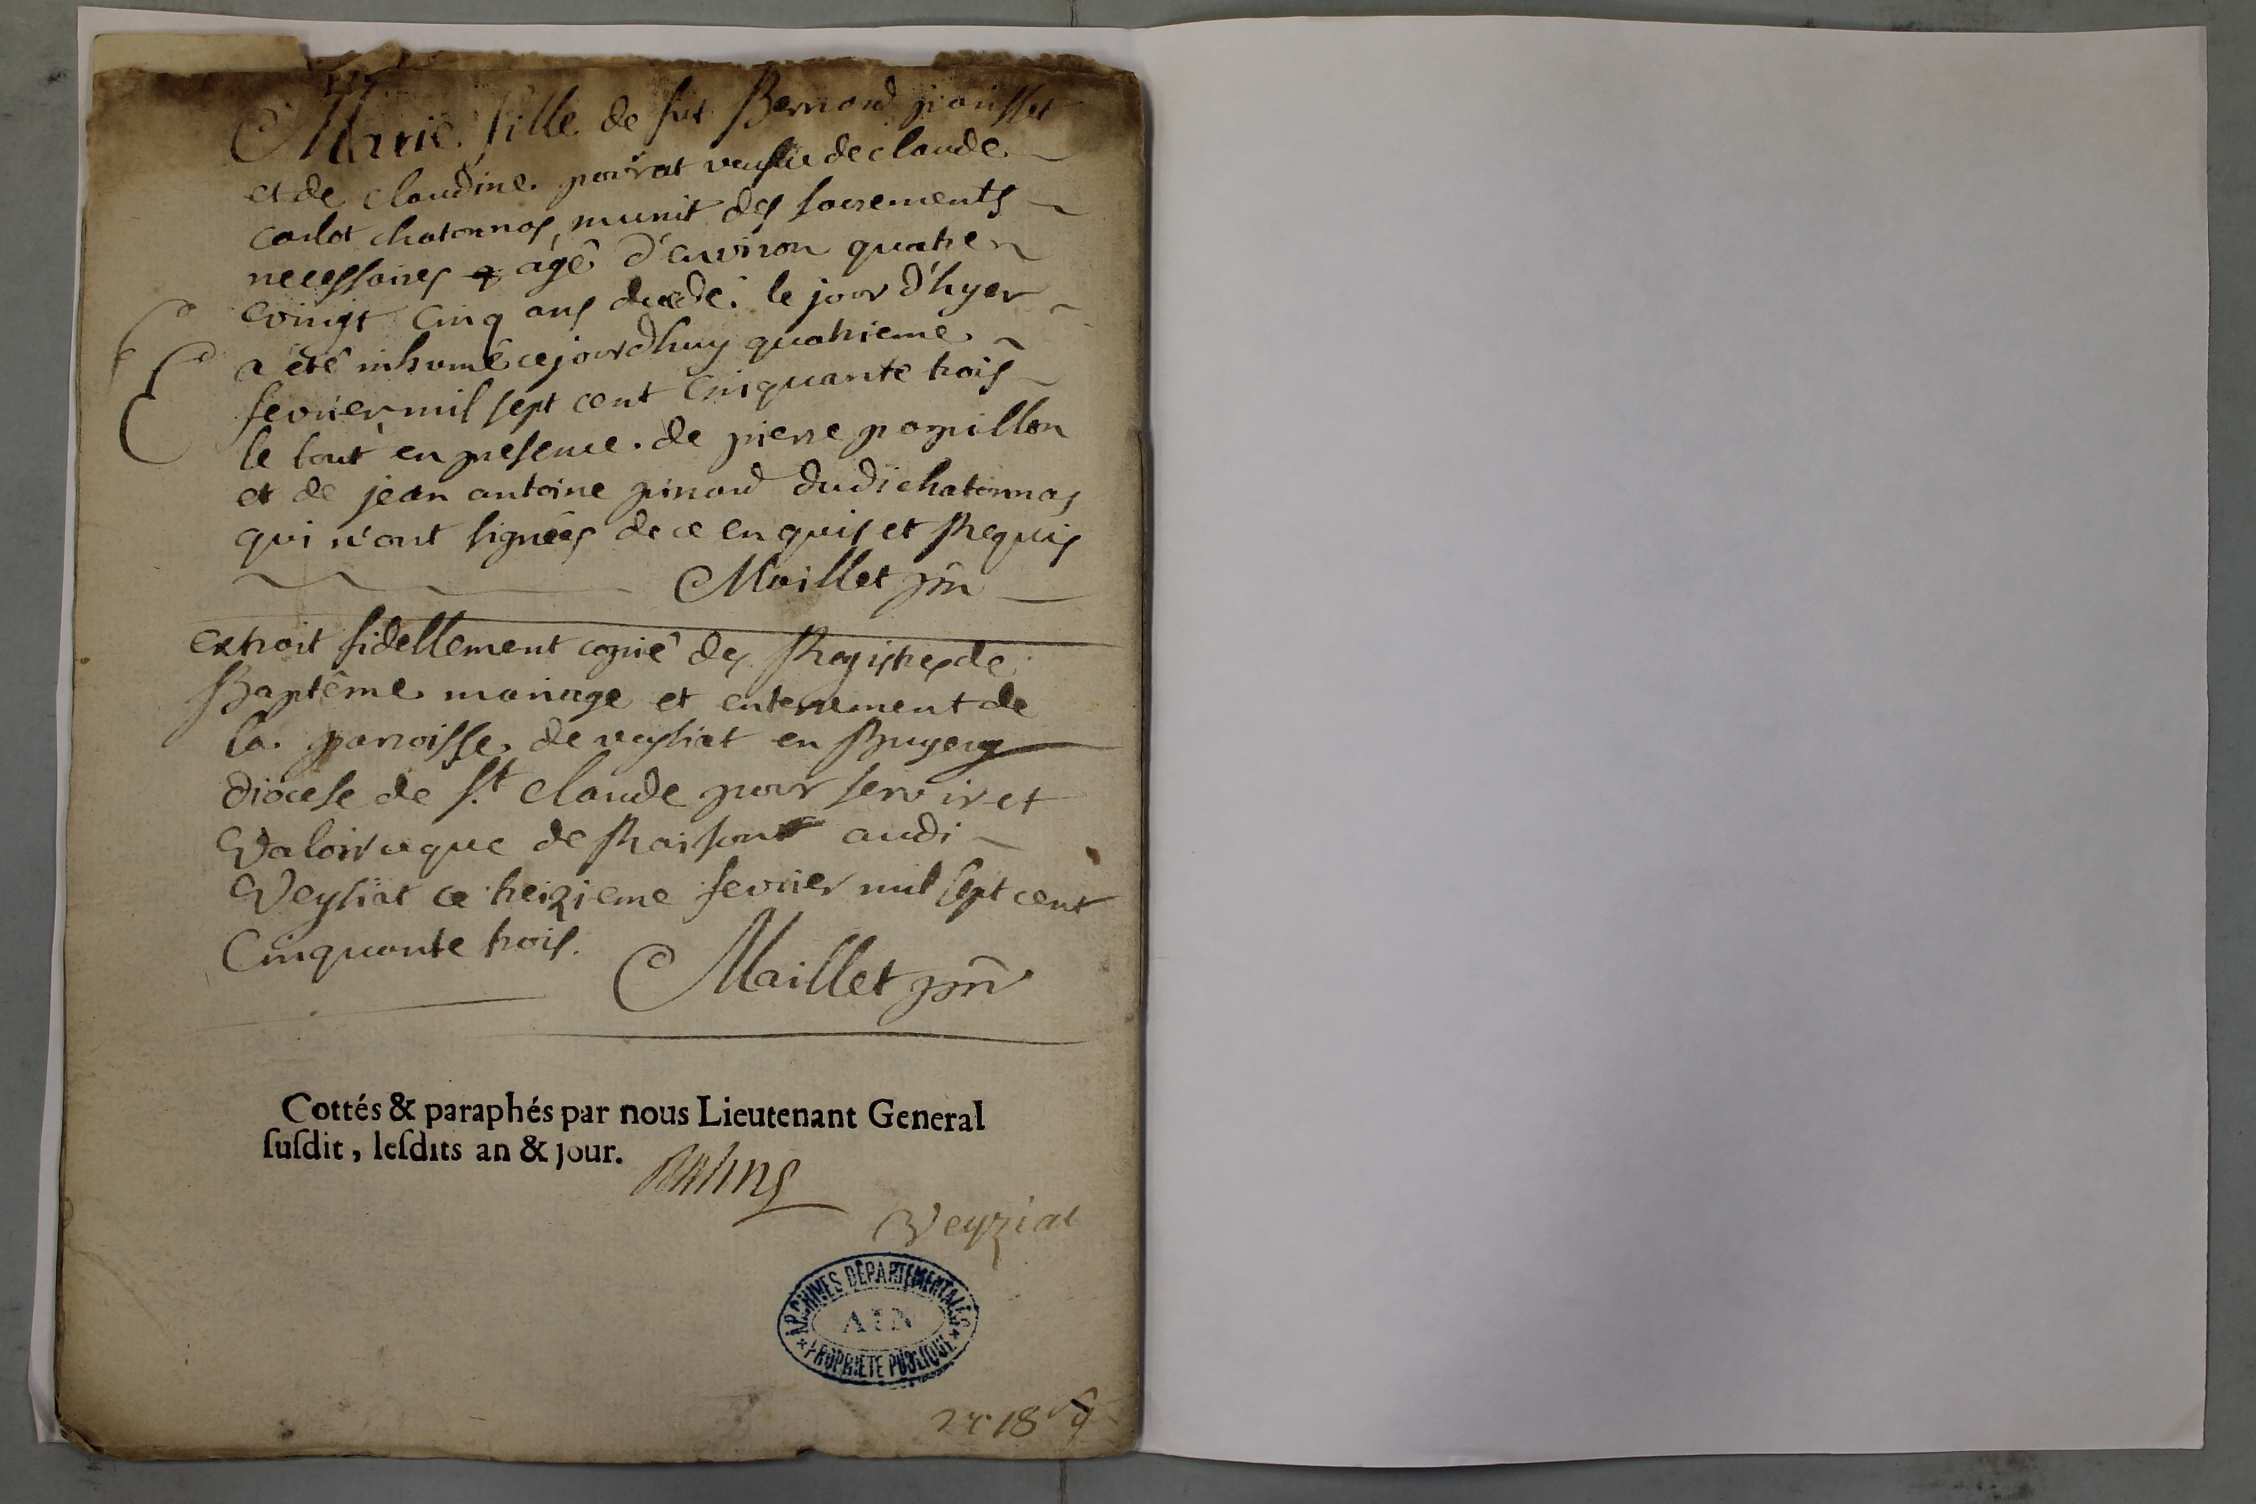 Marie fille de fut Bernard
et de claudine poirat veufue de claude
carlot chatonnas, munit des sacrements
necessaires & agé d'environ quatre
vingt cinq ans decedé le jour d'hyer
a été inhumé cejourdhuy quatrieme
fevrier mil sept cent cinquante trois
le tout en presence de pierre papillon
et de jean antoine pinard dudi chatonnas
qui n'ont signées de ce enquis et Requis
Maillet
extrait fidellement copié des Registres de
Baptême mariage et enterrement de
la parroisse de veysiat en Bugey
diocese de St claude pour servir et
valoir ce que de Raison audi
Veysiat ce treizieme fevrier mil sept cent
Cinquante trois.
Maillet
Cottés & paraphés par nous Lieutenant General
susdit, lesdits an & jour.
Veyziat
ARCHIVES DÉPARTEMENTALES
AIN
PROPRIÉTÉ PUBLIQUE